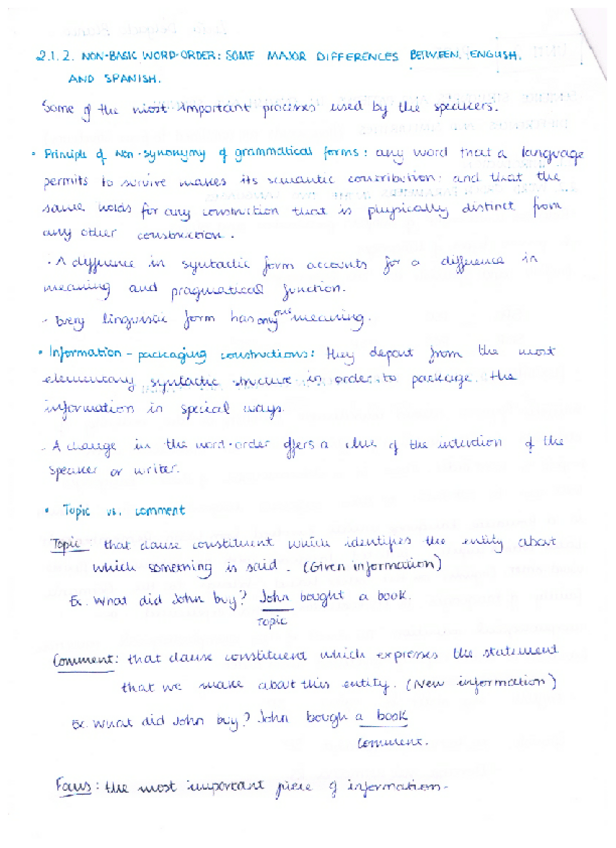 2.1.2. NON-BASIC WORD-ORDER: SOME MAJOR DIFFERENCES BETWEEN ENGLISH
AND SPANISH.
Some of the most important processes used by the speakers.
• Principle of Non-synonymy of grammatical forms: any word that a language
permits to survive makes its semantic contribution and that the
same holds for any construction that is physically distinct from
any other construction.
- A difference in syntactic form accounts for a difference in
meaning and pragmatical function.
- Every linguistic form has only one meaning.
• Information-packaging constructions: they depart from the most
elementary syntactic structure in order to package the
information in special ways.
- A change in the word-order offers a clue of the intention of the
speaker or writer.
• Topic vs. comment
Topic that clause constituent which identifies the entity about
which something is said. (Given information)
Ex. What did John buy? John bought a book.
Topic
Comment: that clause constituent which expresses the statement
that we make about this entity. (New information)
Ex. What did John buy? John bough a book
comment.
Focus: the most important piece of information.